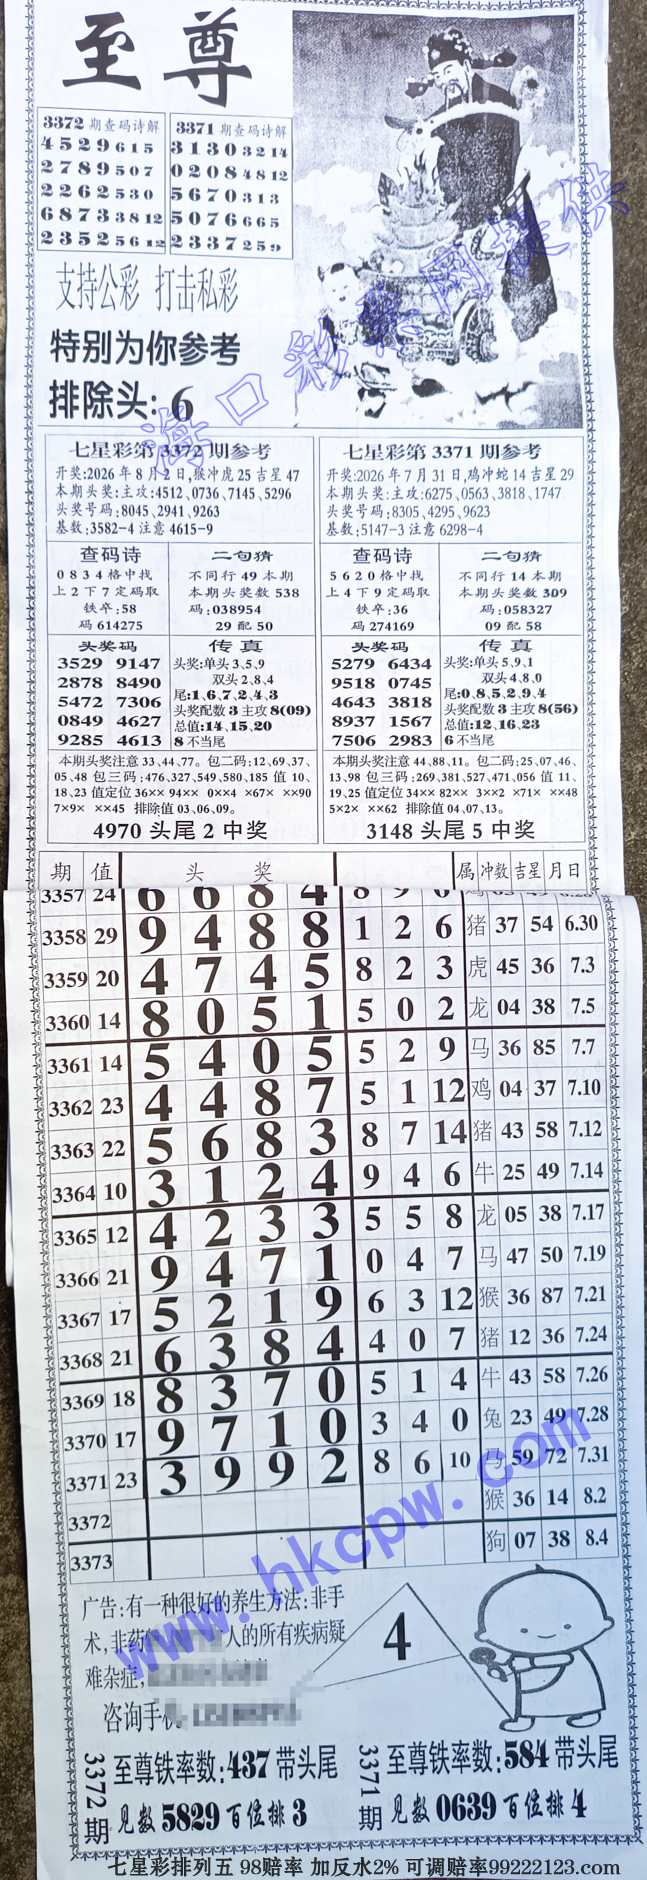 至尊
3372期查码诗解
4529615
2789507
2262530
68733812
23525612
3371期查码诗解
31303214
02084812
5670313
5076665
2337259
支持公彩 打击私彩
特别为你参考
排除头:6
海口彩票网提供
七星彩第3372期参考
开奖:2026年8月2日,猴冲虎25吉星47
本期头奖:主攻:4512、0736、7145、5296
头奖号码:8045、2941、9263
基数:3582-4注意4615-9
查码诗
0834格中找
上2下7定码取
铁卒:58
码614275
二句猜
不同行49本期
本期头奖数538
码:038954
29配50
头奖码
3529 9147
2878 8490
5472 7306
0849 4627
9285 4613
传真
头奖:单头3、5、9
双头2、8、4
尾:1、6、7、2、4、3
头奖配数3主攻8(09)
总值:14、15、20
8不当尾
本期头奖注意33、44、77。包二码:12、69、37、
05、48包三码:476、327、549、580、185值10、
18、23值定位36×× 94×× 0××4 ×67× ××90
7×9× ××45 排除值03、06、09。
4970头尾2中奖
七星彩第3371期参考
开奖:2026年7月31日,鸡冲蛇14吉星29
本期头奖:主攻:6275、0563、3818、1747
头奖号码:8305、4295、9623
基数:5147-3注意6298-4
查码诗
5620格中找
上4下9定码取
铁卒:36
码274169
二句猜
不同行14本期
本期头奖数309
码:058327
09配58
头奖码
5279 6434
9518 0745
4643 3818
8937 1567
7506 2983
传真
头奖:单头5、9、1
双头4、8、0
尾:0、8、5、2、9、4
头奖配数3主攻8(56)
总值:12、16、23
6不当尾
本期头奖注意44、88、11。包二码:25、07、46、
13、98包三码:269、381、527、471、056值11、
19、25值定位34×× 82×× 3××2 ×71× ××48
5×2× ××62 排除值04、07、13。
3148头尾5中奖
期 值 头奖 属 冲数 吉星 月日
3357 24 6 6 8 4 8 9
3358 29 9 4 8 8 1 2 6 猪 37 54 6.30
3359 20 4 7 4 5 8 2 3 虎 45 36 7.3
3360 14 8 0 5 1 5 0 2 龙 04 38 7.5
3361 14 5 4 0 5 5 2 9 马 36 85 7.7
3362 23 4 4 8 7 5 1 12 鸡 04 37 7.10
3363 22 5 6 8 3 8 7 14 猪 43 58 7.12
3364 10 3 1 2 4 9 4 6 牛 25 49 7.14
3365 12 4 2 3 3 5 5 8 龙 05 38 7.17
3366 21 9 4 7 1 0 4 7 马 47 50 7.19
3367 17 5 2 1 9 6 3 12 猴 36 87 7.21
3368 21 6 3 8 4 4 0 7 猪 12 36 7.24
3369 18 8 3 7 0 5 1 4 牛 43 58 7.26
3370 17 9 7 1 0 3 4 0 兔 23 49 7.28
3371 23 3 9 9 2 8 6 10 马 59 72 7.31
3372 猴 36 14 8.2
3373 狗 07 38 8.4
www.hkcpw.com
广告:有一种很好的养生方法:非手
术,非药 人的所有疾病疑
难杂症,
咨询手机
4
3372期
至尊铁率数:437带头尾
见数5829百位排3
3371期
至尊铁率数:584带头尾
见数0639百位排4
七星彩排列五 98赔率 加反水2% 可调赔率99222123.com